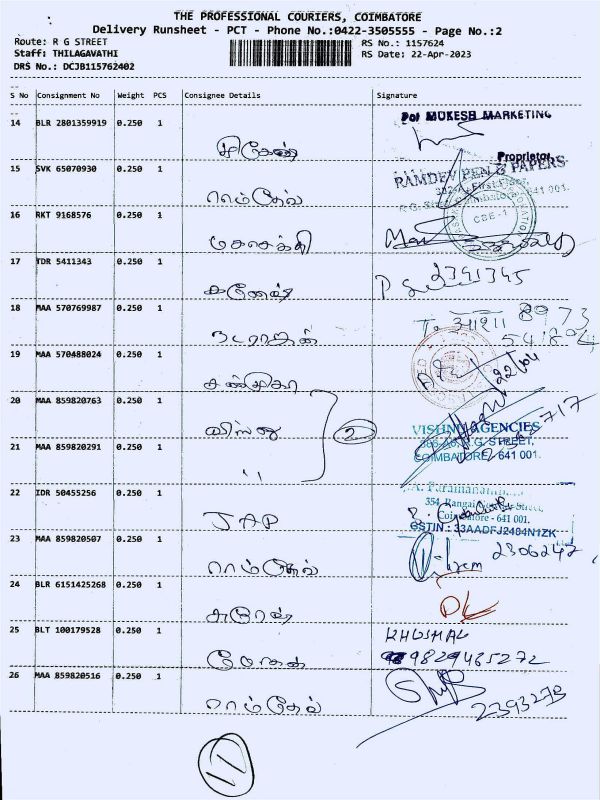 THE PROFESSIONAL COURIERS, COIMBATORE
Delivery Runsheet - PCT - Phone No.:0422-3505555 - Page No.:2
Route: R G STREET
RS No.: 1157624
Staff: THILAGAVATHI
RS Date: 22-Apr-2023
DRS No.: DCJB115762402
S No Consignment No Weight PCS Consignee Details Signature
14 BLR 2801359919 0.250 1
For MUKESH MARKETING
Proprietor
15 SVK 65070930 0.250 1 ராம்தேவ்
RAMDEV PEN & PAPERS
Coimbatore 641 001.
16 RKT 9168576 0.250 1 மகாசக்தி
CBE-1
17 TDR 5411343 0.250 1 கணேஷ் 2341345
18 MAA 570769987 0.250 1 நடராஜன்
8973
19 MAA 570488024 0.250 1 சண்முகா
22/04
20 MAA 859820763 0.250 1 விஸ்ணு 2
VISHNU AGENCIES
R.G. STREET,
21 MAA 859820291 0.250 1 "
COIMBATORE, 641 001.
22 IDR 50455256 0.250 1 JAP
354, Rangai Street,
Coimbatore - 641 001.
GSTIN : 33AADFJ2484N1ZK
23 MAA 859820507 0.250 1 ராம்தேவ் 2306247
24 BLR 6151425268 0.250 1 சுரேஷ்
25 BLT 100179528 0.250 1 மோகன்
KHUSHAL
9829465272
26 MAA 859820516 0.250 1 ராம்தேவ் 2393273
11